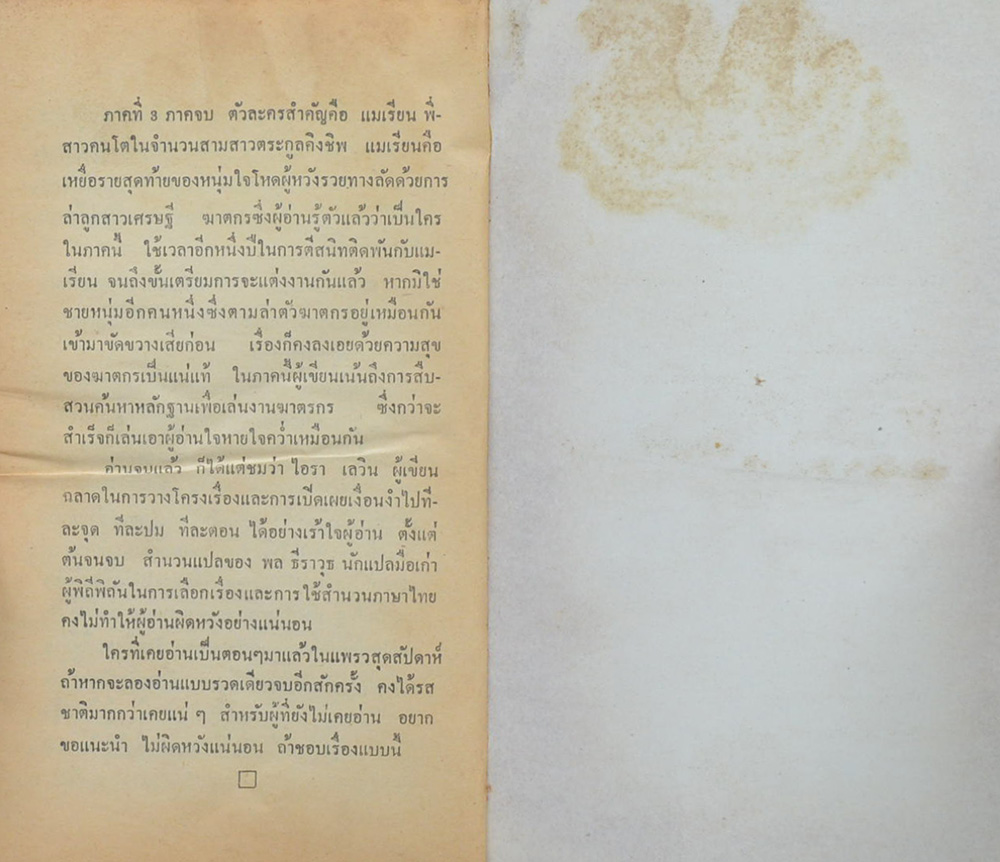 ภาคที่ 3 ภาคจบ ตัวละครสำคัญคือ แมเรียน พี่-
สาวคนโตในจำนวนสามสาวตระกูลคิงชิพ แมเรียนคือ
เหยื่อรายสุดท้ายของหนุ่มใจโหดผู้หวังรวยทางลัดด้วยการ
ล่าลูกสาวเศรษฐี ฆาตกรซึ่งผู้อ่านรู้ตัวแล้วว่าเป็นใคร
ในภาคนี้ ใช้เวลาอีกหนึ่งปีในการตีสนิทติดพันกับแม-
เรียน จนถึงขั้นเตรียมการจะแต่งงานกันแล้ว หากมิใช่
ชายหนุ่มอีกคนหนึ่งซึ่งตามล่าตัวฆาตกรอยู่เหมือนกัน
เข้ามาขัดขวางเสียก่อน เรื่องก็คงลงเอยด้วยความสุข
ของฆาตกรเป็นแน่แท้ ในภาคนี้ผู้เขียนเน้นถึงการสืบ-
สวนค้นหาหลักฐานเพื่อเล่นงานฆาตรกร ซึ่งกว่าจะ
สำเร็จก็เล่นเอาผู้อ่านใจหายใจคว่ำเหมือนกัน
อ่านจบแล้ว ก็ได้แต่ชมว่า ไอรา เลวิน ผู้เขียน
ฉลาดในการวางโครงเรื่องและการเปิดเผยเงื่อนงำไปที-
ละจุด ทีละปม ทีละตอน ได้อย่างเร้าใจผู้อ่าน ตั้งแต่
ต้นจนจบ สำนวนแปลของ พล ธีราวุธ นักแปลมือเก่า
ผู้พิถีพิถันในการเลือกเรื่องและการใช้สำนวนภาษาไทย
คงไม่ทำให้ผู้อ่านผิดหวังอย่างแน่นอน
ใครที่เคยอ่านเป็นตอนๆมาแล้วในแพรวสุดสัปดาห์
ถ้าหากจะลองอ่านแบบรวดเดียวจบอีกสักครั้ง คงได้รส
ชาติมากกว่าเคยแน่ ๆ สำหรับผู้ที่ยังไม่เคยอ่าน อยาก
ขอแนะนำ ไม่ผิดหวังแน่นอน ถ้าชอบเรื่องแบบนี้